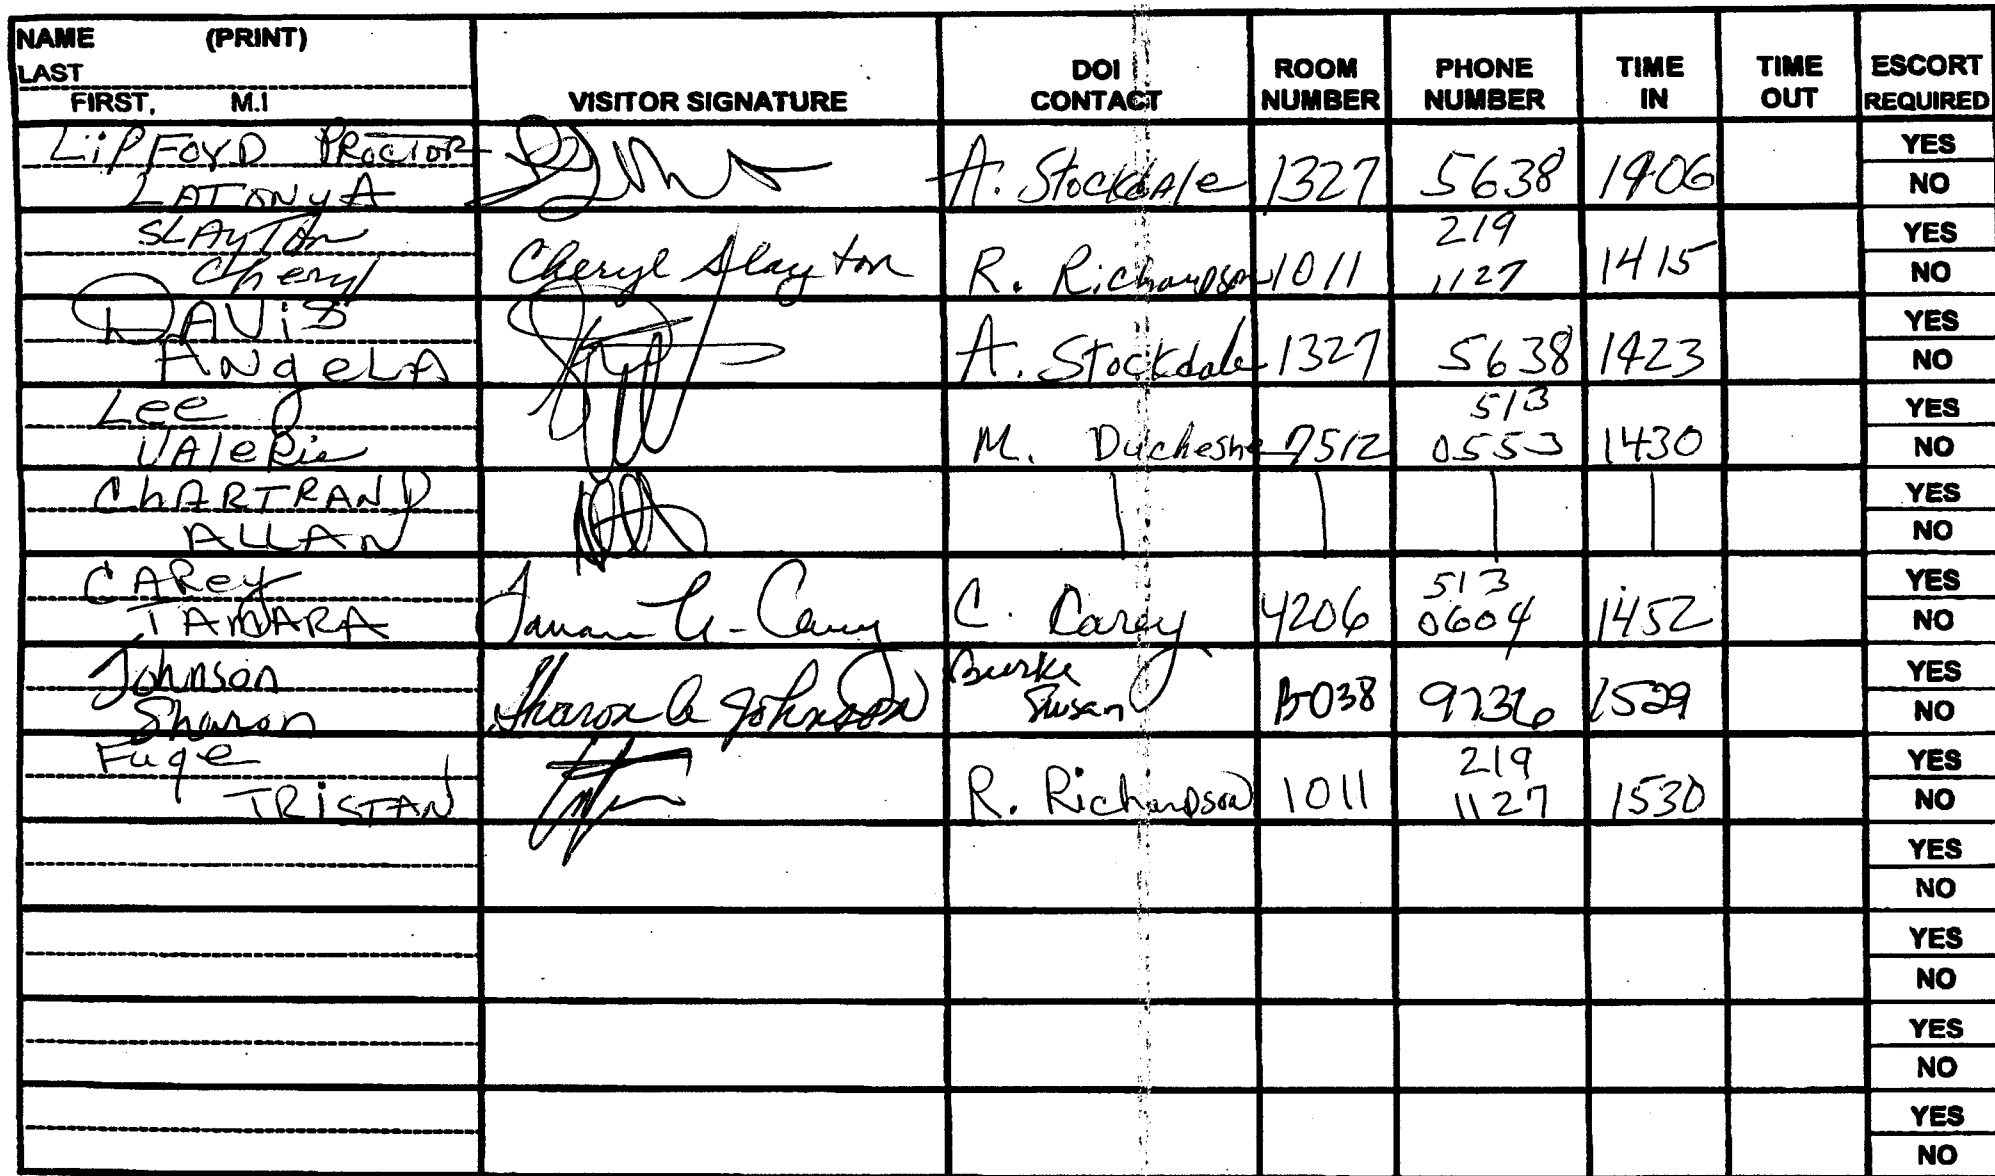 NAME (PRINT)
LAST
FIRST, M.I
VISITOR SIGNATURE
DOI CONTACT
ROOM NUMBER
PHONE NUMBER
TIME IN
TIME OUT
ESCORT REQUIRED
LiPFORD PROCTOR
LATONYA
A. Stockdale 1327 5638 1406
YES
NO
SLAYTON
Cheryl
Cheryl Slayton R. Richardson 1011 219 1127 1415
YES
NO
DAViS
ANgeLA
A. Stockdale 1327 5638 1423
YES
NO
Lee
VAleRie
M. Duchesne 7512 513 0553 1430
YES
NO
ChARTRAND
ALLAN
YES
NO
CARey
TAMARA
C. Carey 4206 513 0604 1452
YES
NO
Johnson
Sharon
Sharon A Johnson Burke Susan B038 9736 1529
YES
NO
Fuge
TRiSTAN
R. Richardson 1011 219 1127 1530
YES
NO
YES
NO
YES
NO
YES
NO
YES
NO